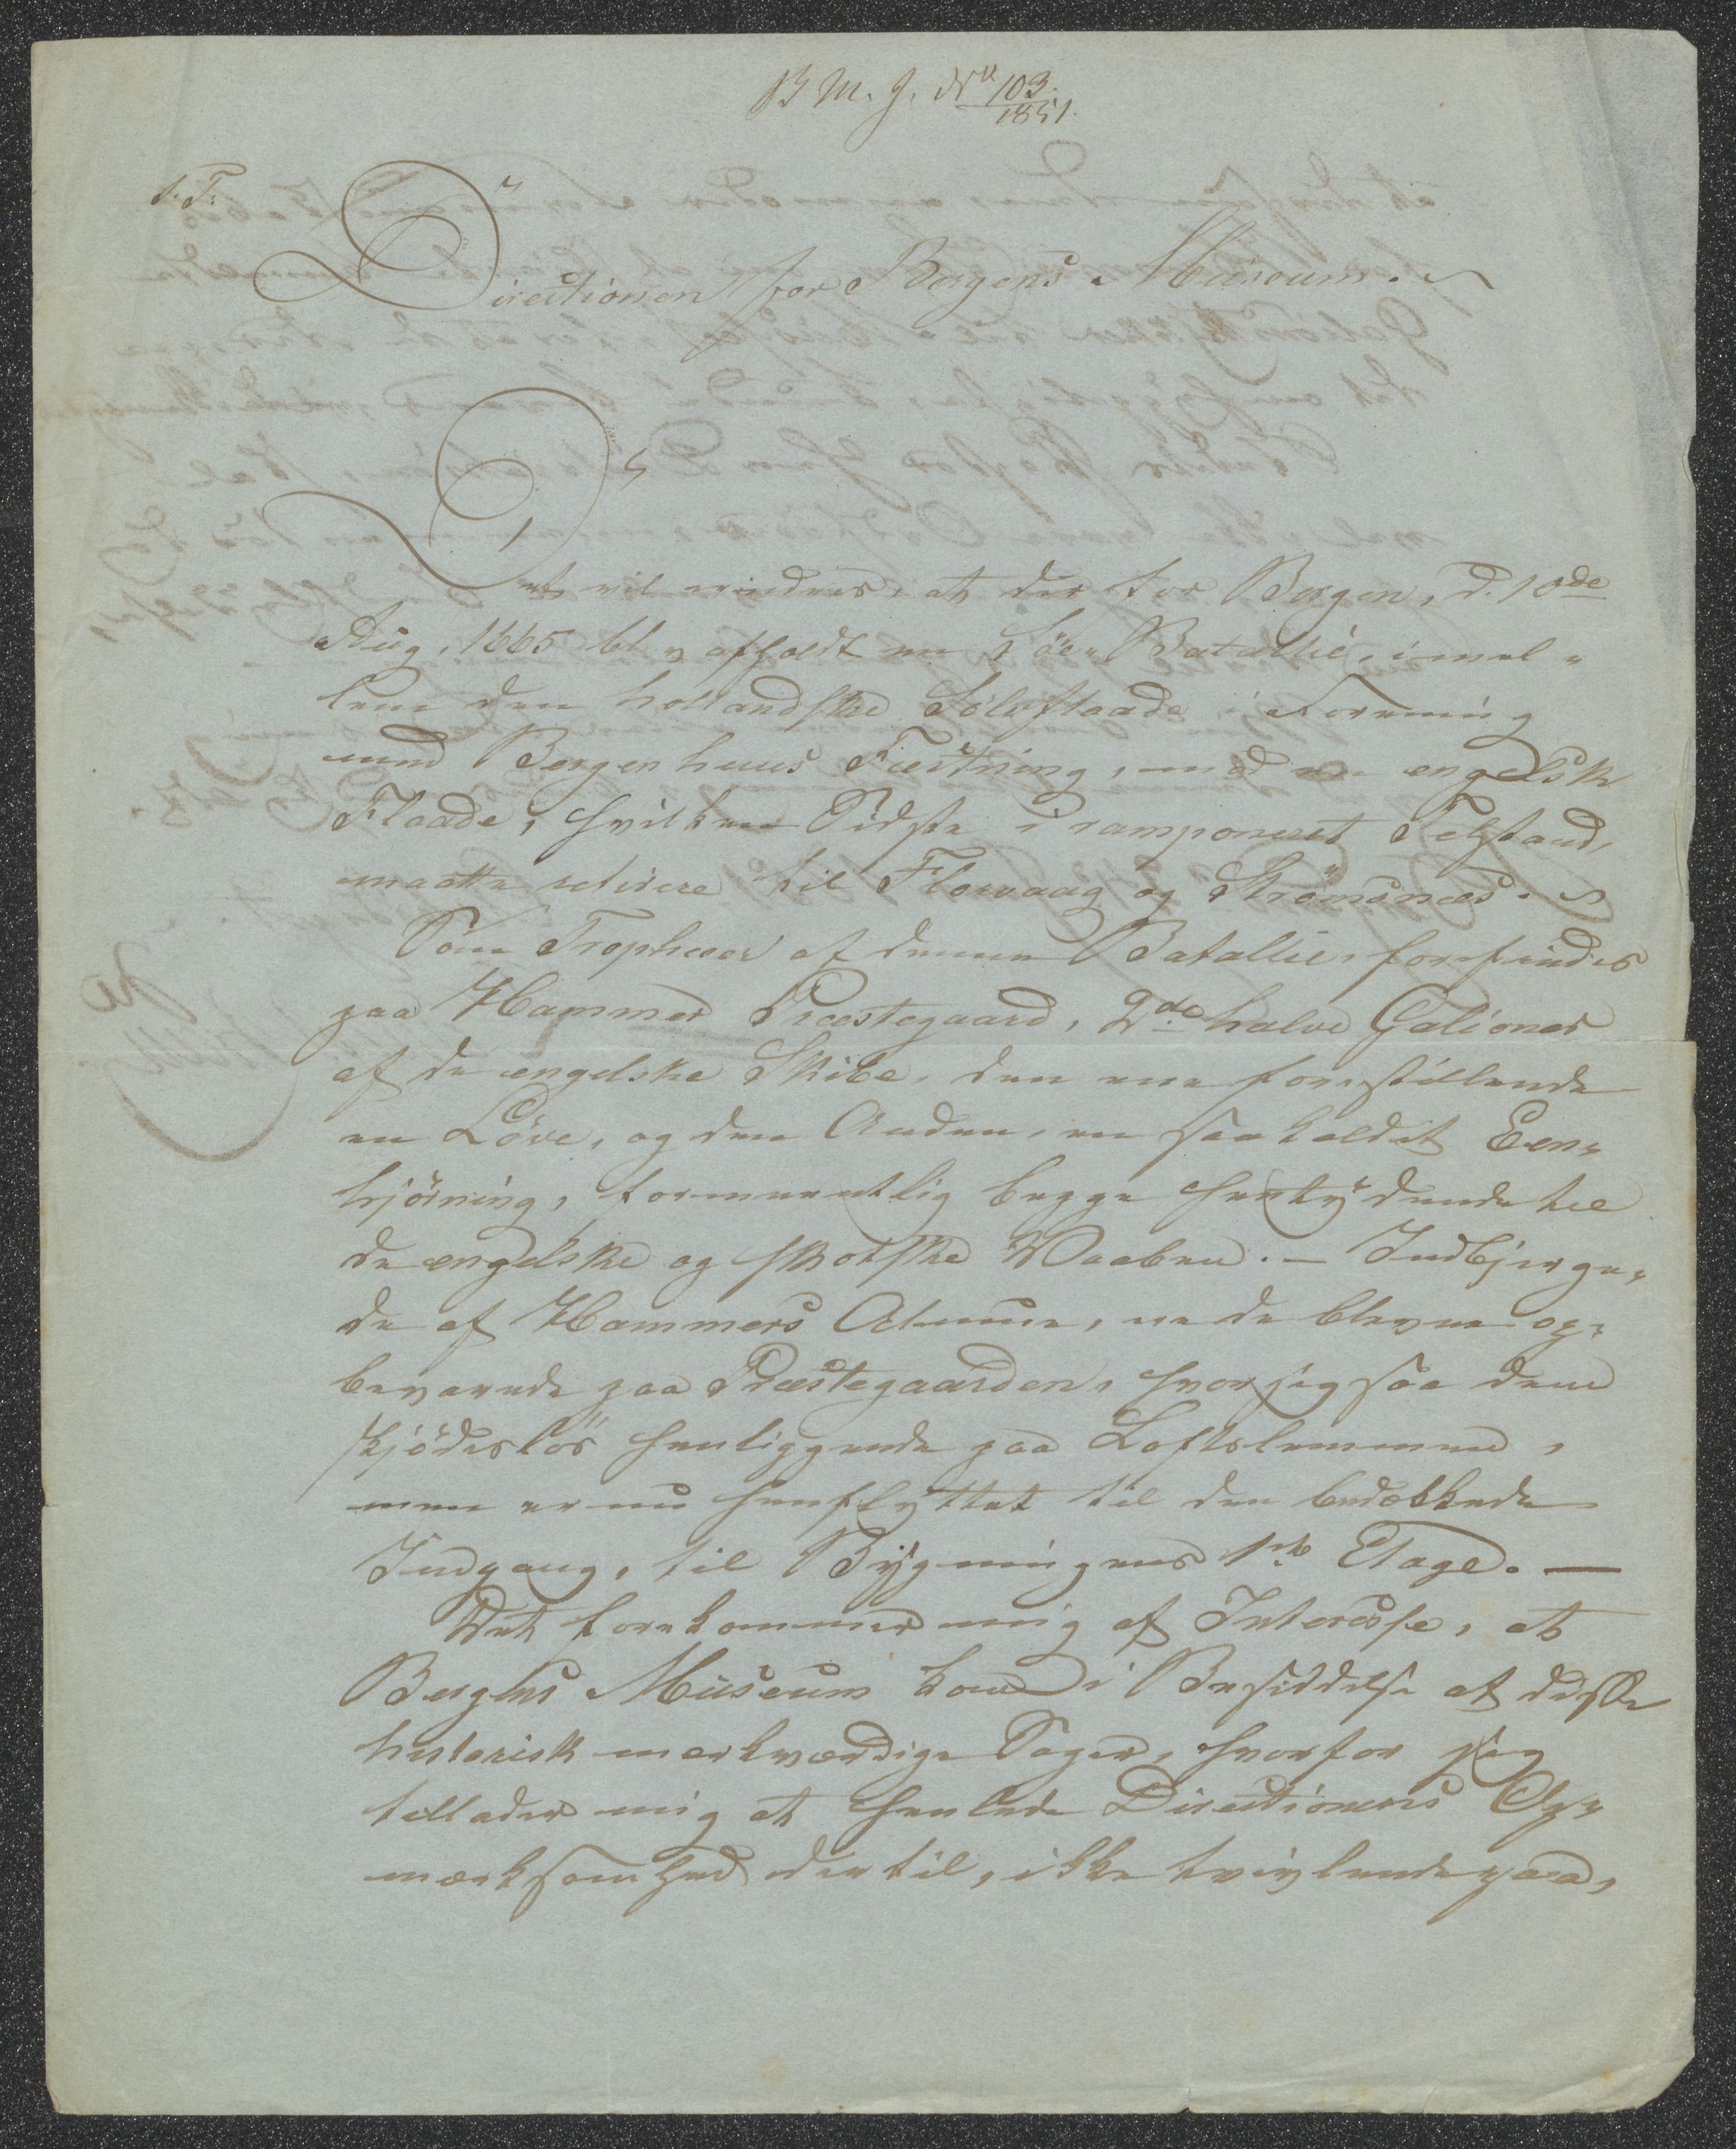 B M. J. No 103.
1851.
S. T.
Directionen for Bergens Museum.
Det vil erindres, at der for Bergen, d. 10de
Aug. 1665 blev afholdt en Söe-Batallie, imel-
lem den hollandske Sölvflaade i Forening
med Bergenhuus Fæstning, mod en engelsk
Flaade, hvilken Sidste i ramponeret Tilstand,
maatte retirere til Florvaag og Strømsnæs.
Som Tropheer af denne Batallie, forefindes
paa Hammer Præstegaard, 2de halve Galioner
af de engelske Skibe, den ene forestillende
en Löve, og den Anden, en saakaldet Een-
hjörning, formeentlig begge hentydende til
de engelske og skotske Vaaben. — Indbjerge-
de af Hammers Almue, ere de blevne op-
bevarede paa Præstegaarden, hvor jeg saa dem
skjödeslös henliggende paa Loftslemmen,
men er nu henflyttet til den bedækkede
Indgang, til Bygningens 1ste Etage. —
Det forekommer mig af Interesse, at
Bergens Museum kom i Besiddelse af disse
historisk mærkværdige Sager, hvorfor jeg
tillader mig at henlede Directionens Op-
mærksomhed dertil, ikke tvivlende paa,